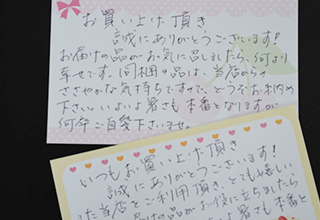 お買い上げ頂き
誠にありがとうございます!
お届けの品がお気に召しましたら、何より
幸せです。同梱の品は、当店からの
ささやかな気持ちですので、どうぞお納め
下さい。いよいよ暑さも本番となりますが
何卒ご自愛下さいませ。
いつもお買い上げ頂き
誠にありがとうございます!
た当店をご利用頂き、とても嬉しい
の品がお役に立ちましたら
暑さも本番と